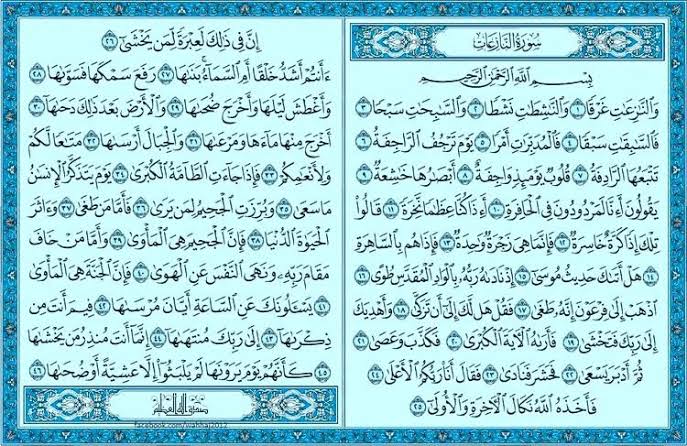 سُورَةُ النَّازِعَاتِ
بِسْمِ اللَّهِ الرَّحْمَٰنِ الرَّحِيمِ
وَالنَّازِعَاتِ غَرْقًا ١ وَالنَّاشِطَاتِ نَشْطًا ٢ وَالسَّابِحَاتِ سَبْحًا ٣
فَالسَّابِقَاتِ سَبْقًا ٤ فَالْمُدَبِّرَاتِ أَمْرًا ٥ يَوْمَ تَرْجُفُ الرَّاجِفَةُ ٦
تَتْبَعُهَا الرَّادِفَةُ ٧ قُلُوبٌ يَوْمَئِذٍ وَاجِفَةٌ ٨ أَبْصَارُهَا خَاشِعَةٌ ٩
يَقُولُونَ أَءِنَّا لَمَرْدُودُونَ فِي الْحَافِرَةِ ١٠ أَءِذَا كُنَّا عِظَامًا نَّخِرَةً ١١ قَالُوا
تِلْكَ إِذًا كَرَّةٌ خَاسِرَةٌ ١٢ فَإِنَّمَا هِيَ زَجْرَةٌ وَاحِدَةٌ ١٣ فَإِذَا هُم بِالسَّاهِرَةِ
١٤ هَلْ أَتَاكَ حَدِيثُ مُوسَىٰ ١٥ إِذْ نَادَاهُ رَبُّهُ بِالْوَادِ الْمُقَدَّسِ طُوًى ١٦
اذْهَبْ إِلَىٰ فِرْعَوْنَ إِنَّهُ طَغَىٰ ١٧ فَقُلْ هَل لَّكَ إِلَىٰ أَن تَزَكَّىٰ ١٨ وَأَهْدِيَكَ
إِلَىٰ رَبِّكَ فَتَخْشَىٰ ١٩ فَأَرَاهُ الْآيَةَ الْكُبْرَىٰ ٢٠ فَكَذَّبَ وَعَصَىٰ ٢١
ثُمَّ أَدْبَرَ يَسْعَىٰ ٢٢ فَحَشَرَ فَنَادَىٰ ٢٣ فَقَالَ أَنَا رَبُّكُمُ الْأَعْلَىٰ ٢٤
فَأَخَذَهُ اللَّهُ نَكَالَ الْآخِرَةِ وَالْأُولَىٰ ٢٥
إِنَّ فِي ذَٰلِكَ لَعِبْرَةً لِّمَن يَخْشَىٰ ٢٦
ءَأَنتُمْ أَشَدُّ خَلْقًا أَمِ السَّمَاءُ بَنَاهَا ٢٧ رَفَعَ سَمْكَهَا فَسَوَّاهَا ٢٨
وَأَغْطَشَ لَيْلَهَا وَأَخْرَجَ ضُحَاهَا ٢٩ وَالْأَرْضَ بَعْدَ ذَٰلِكَ دَحَاهَا ٣٠
أَخْرَجَ مِنْهَا مَاءَهَا وَمَرْعَاهَا ٣١ وَالْجِبَالَ أَرْسَاهَا ٣٢ مَتَاعًا لَّكُمْ
وَلِأَنْعَامِكُمْ ٣٣ فَإِذَا جَاءَتِ الطَّامَّةُ الْكُبْرَىٰ ٣٤ يَوْمَ يَتَذَكَّرُ الْإِنسَانُ
مَا سَعَىٰ ٣٥ وَبُرِّزَتِ الْجَحِيمُ لِمَن يَرَىٰ ٣٦ فَأَمَّا مَن طَغَىٰ ٣٧ وَءَاثَرَ
الْحَيَاةَ الدُّنْيَا ٣٨ فَإِنَّ الْجَحِيمَ هِيَ الْمَأْوَىٰ ٣٩ وَأَمَّا مَنْ خَافَ
مَقَامَ رَبِّهِ وَنَهَى النَّفْسَ عَنِ الْهَوَىٰ ٤٠ فَإِنَّ الْجَنَّةَ هِيَ الْمَأْوَىٰ
٤١ يَسْأَلُونَكَ عَنِ السَّاعَةِ أَيَّانَ مُرْسَاهَا ٤٢ فِيمَ أَنتَ مِن
ذِكْرَاهَا ٤٣ إِلَىٰ رَبِّكَ مُنتَهَاهَا ٤٤ إِنَّمَا أَنتَ مُنذِرُ مَن يَخْشَاهَا
٤٥ كَأَنَّهُمْ يَوْمَ يَرَوْنَهَا لَمْ يَلْبَثُوا إِلَّا عَشِيَّةً أَوْ ضُحَاهَا ٤٦
صدق الله العظيم
facebook.com/wahhaj2012